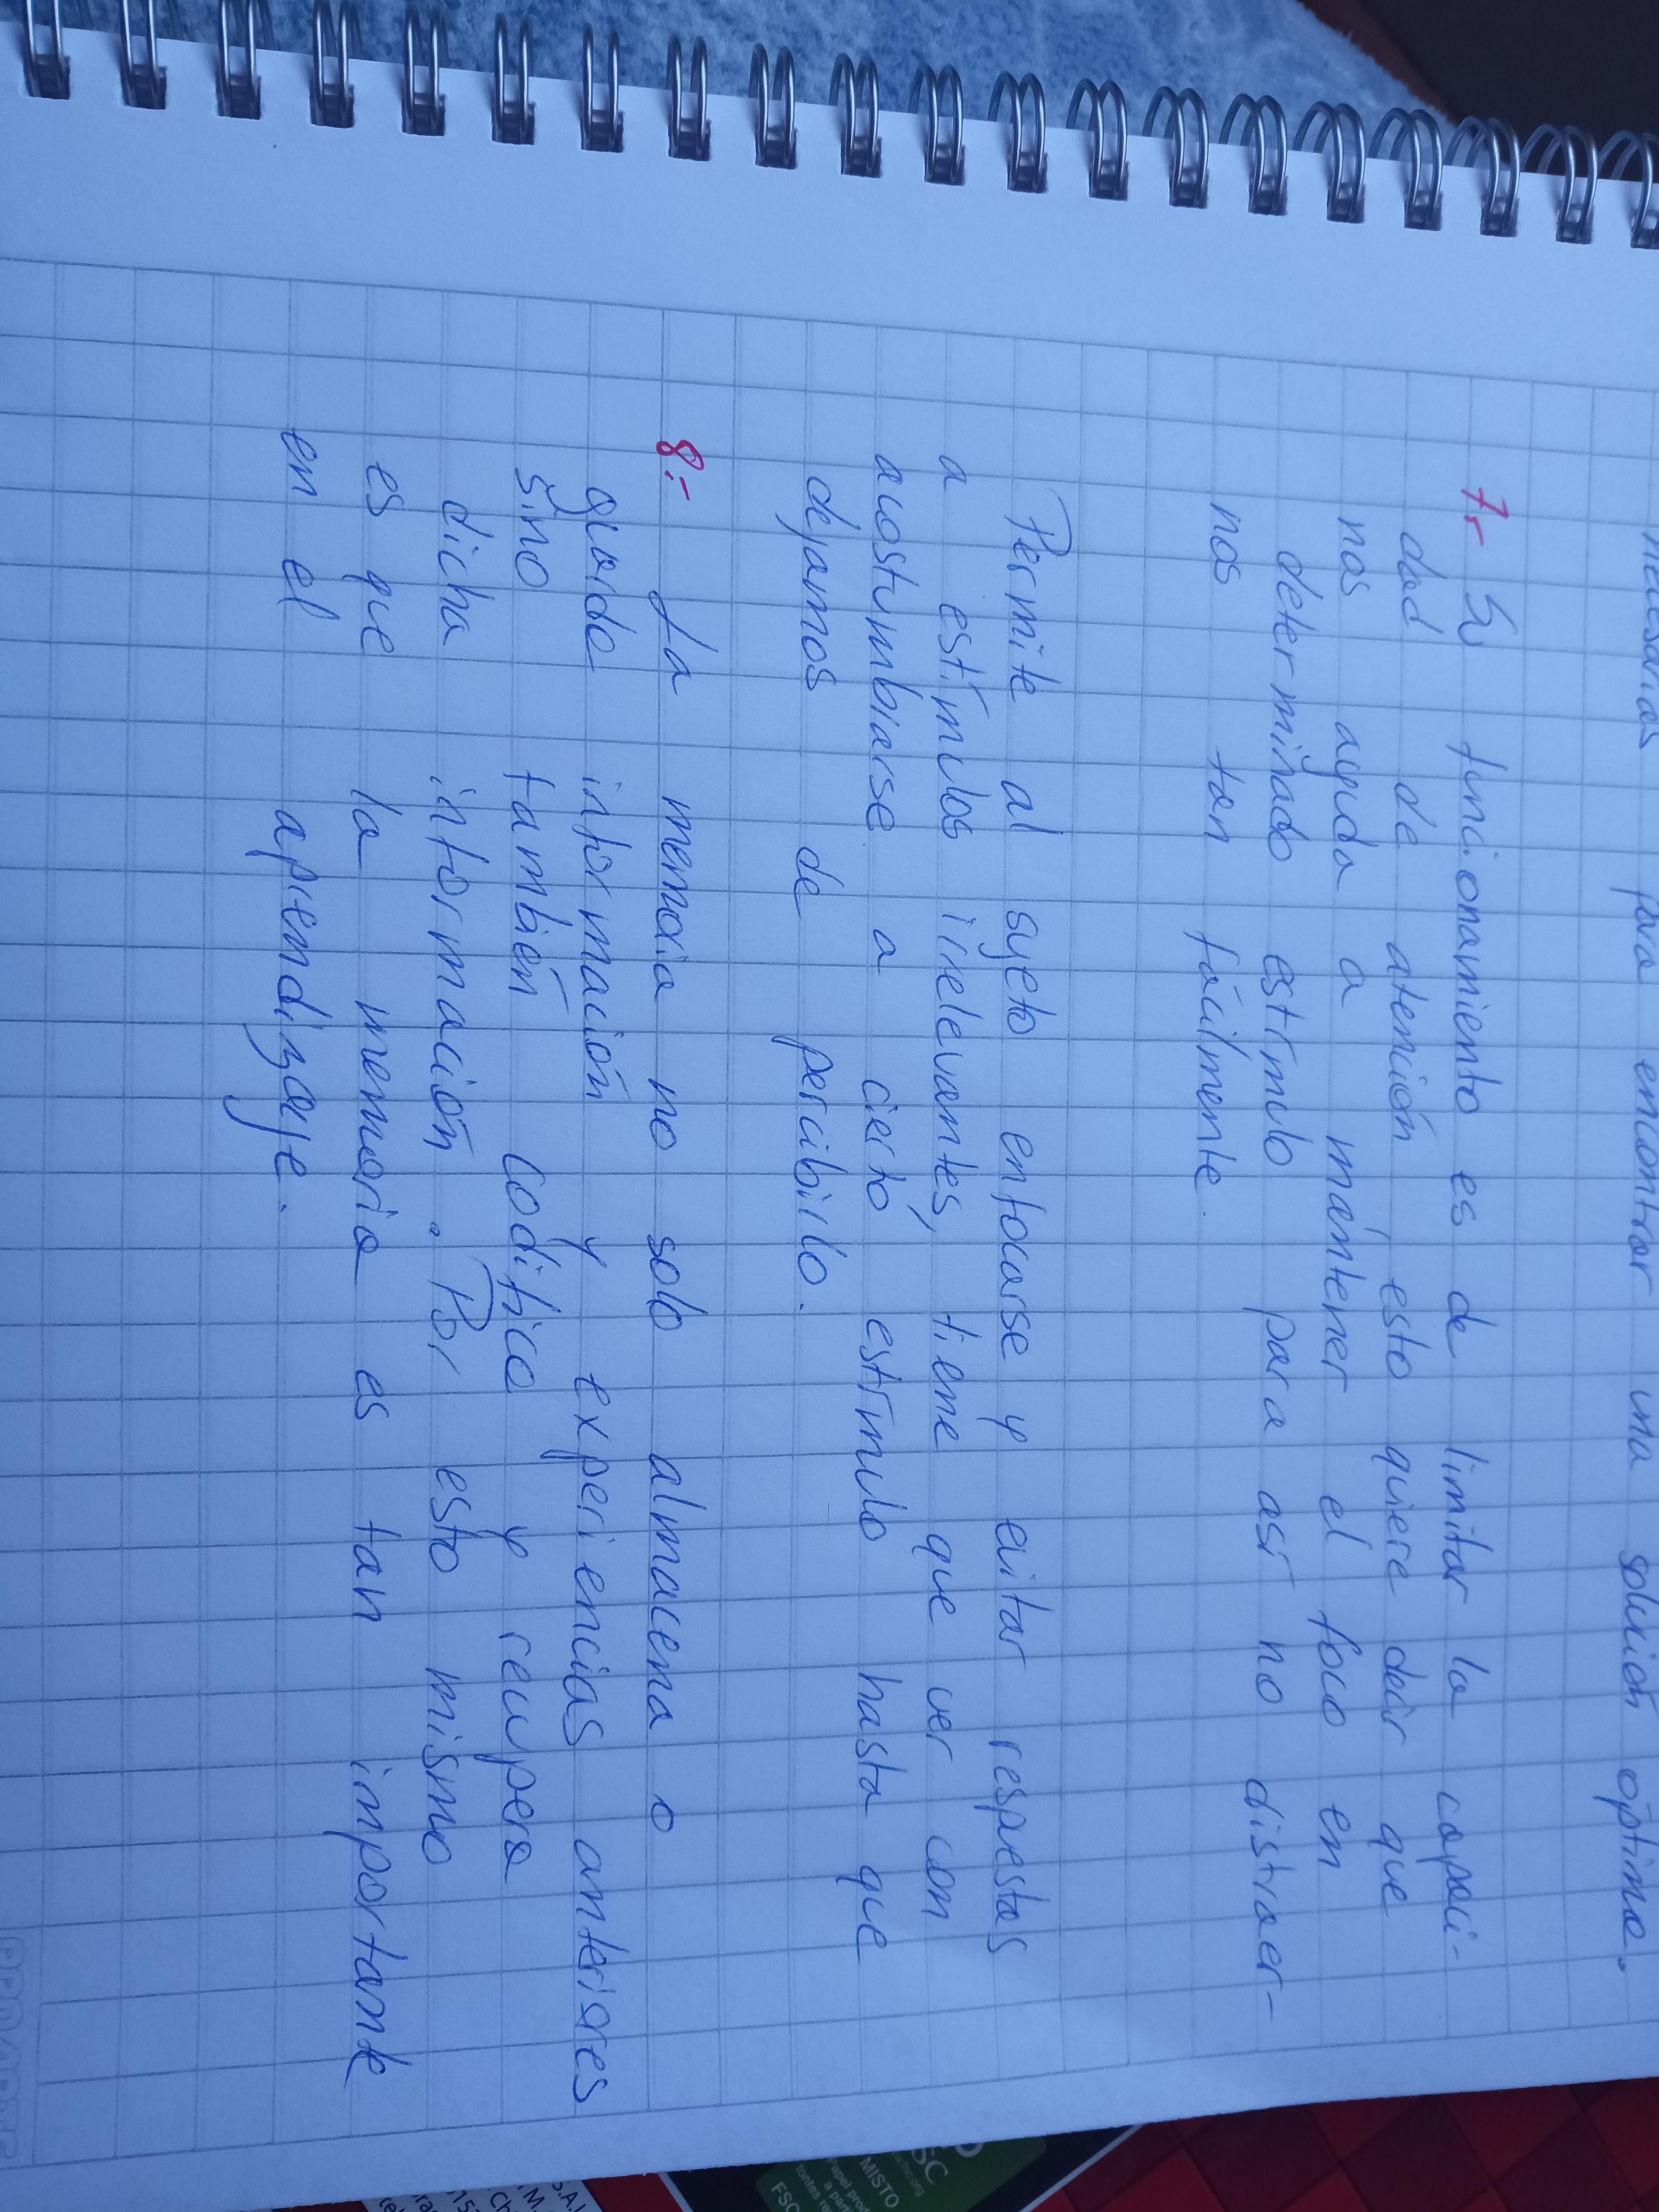 necesarias para encontrar una solución óptima.
7.- Su funcionamiento es de limitar la capaci-
dad de atención esto quiere decir que
nos ayuda a mantener el foco en
determinado estímulo para así no distraer-
nos tan fácilmente.
Permite al sujeto enfocarse y evitar respuestas
a estímulos irrelevantes, tiene que ver con
acostumbrarse a cierto estímulo hasta que
dejamos de percibirlo.
8.- La memoria no solo almacena o
guarda información y experiencias anteriores
sino también codifica y recupera
dicha información. Por esto mismo
es que la memoria es tan importante
en el aprendizaje.
MISTO
Papel
FSC